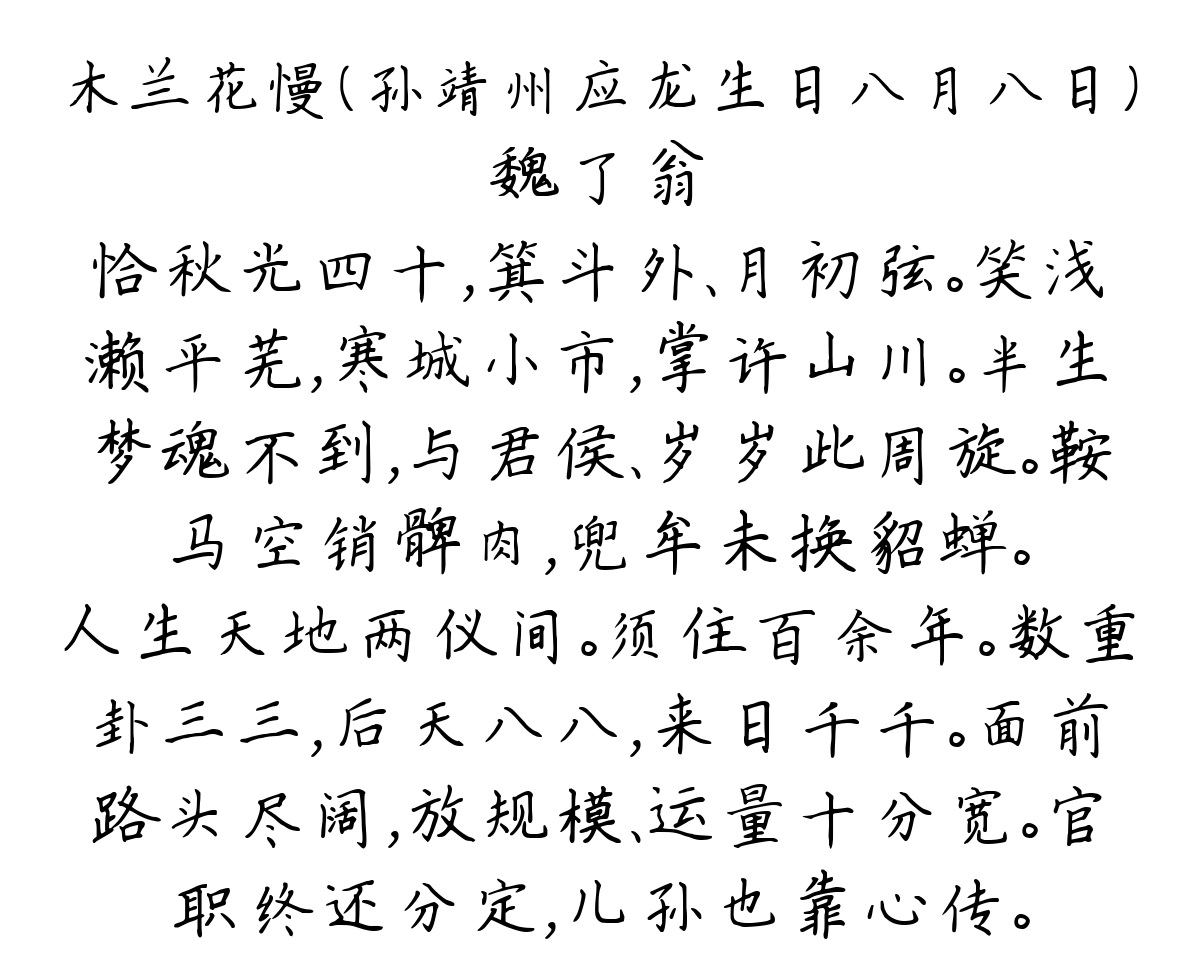 木兰花慢(孙靖州应龙生日八月八日)
魏了翁
恰秋光四十,箕斗外、月初弦。笑浅
濑平芜,寒城小市,掌许山川。半生
梦魂不到,与君侯、岁岁此周旋。鞍
马空销髀肉,兜牟未换貂蝉。
人生天地两仪间。须住百余年。数重
卦三三,后天八八,来日千千。面前
路头尽阔,放规模、运量十分宽。官
职终还分定,儿孙也靠心传。